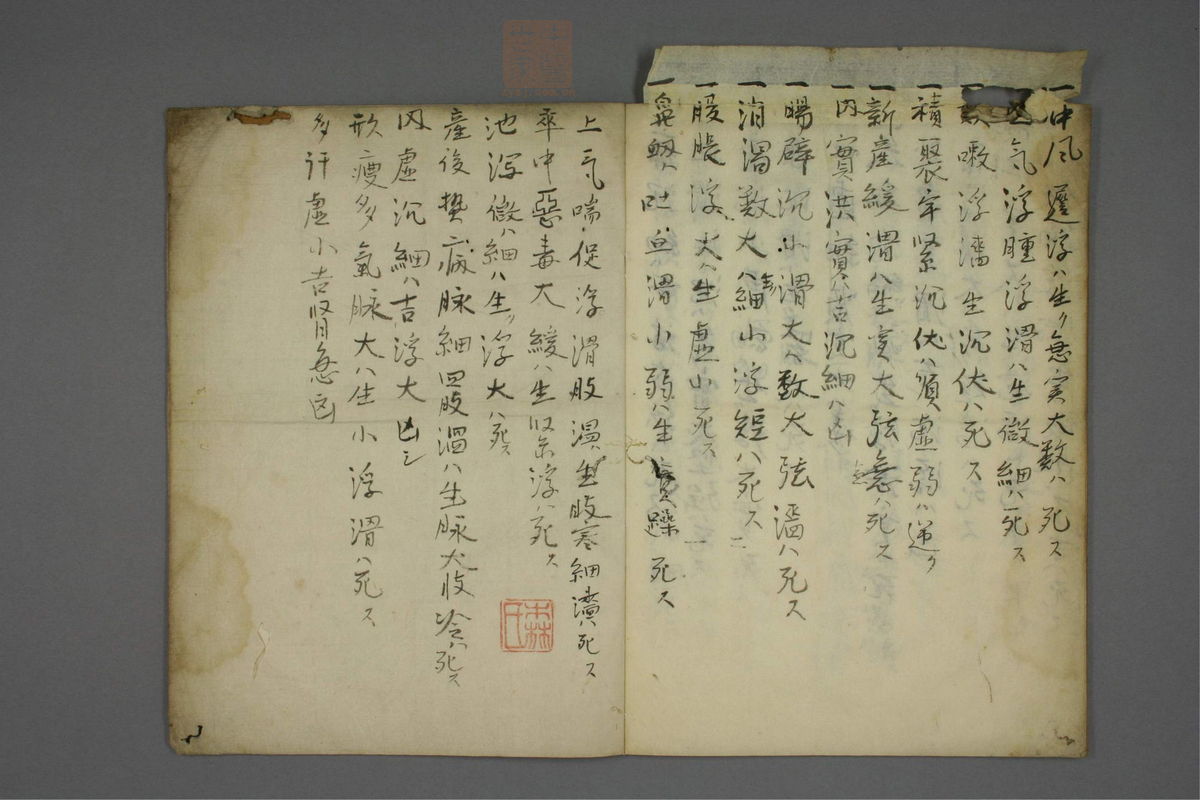 一中風遲浮ハ生ク急実大数ハ死ス
氣浮腫浮滑ハ生微細ハ死ス
嗽浮濇生沉伏ハ死ス
一積聚牢緊沉伏ハ順虚弱ハ逆ク
一新産緩滑ハ生実大弦急ハ死ス
一内實洪實ハ吉沉細ハ凶
一腸癖沉小滑大ハ数大弦濇ハ死ス
一消渇数大ハ細小浮短ハ死ス
一腹脹浮大ハ生虚小死ス
一鼻衂ハ吐血滑小弱ハ生實躁死ス
上氣喘促浮滑肢温生肢寒細濇ハ死ス
卒中惡毒大緩ハ生緊浮ハ死ス
池瀉微ハ細ハ生ク浮大ハ死ス
産後熱病脉細四肢温ハ生脉大肢冷ハ死ス
内虚沉細ハ吉浮大凶シ
形瘦多氣脉大ハ生小浮滑ハ死ス
多汗虚小吉緊急凶
森氏